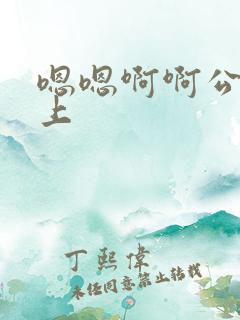 嗯嗯啊啊公
上
丁熙偉
未经同意禁止转载